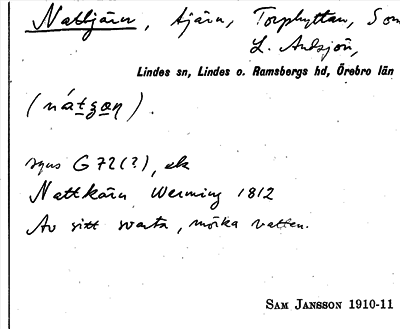 Nattjärn, tjärn, Torphyttan, S om
L. Anksjön,
Lindes sn, Lindes o. Ramsbergs hd, Örebro län
(nátʒən).
syns G 72 (?), ek
Nattkärn Werming 1812
Av sitt svarta, mörka vatten.
SAM JANSSON 1910-11